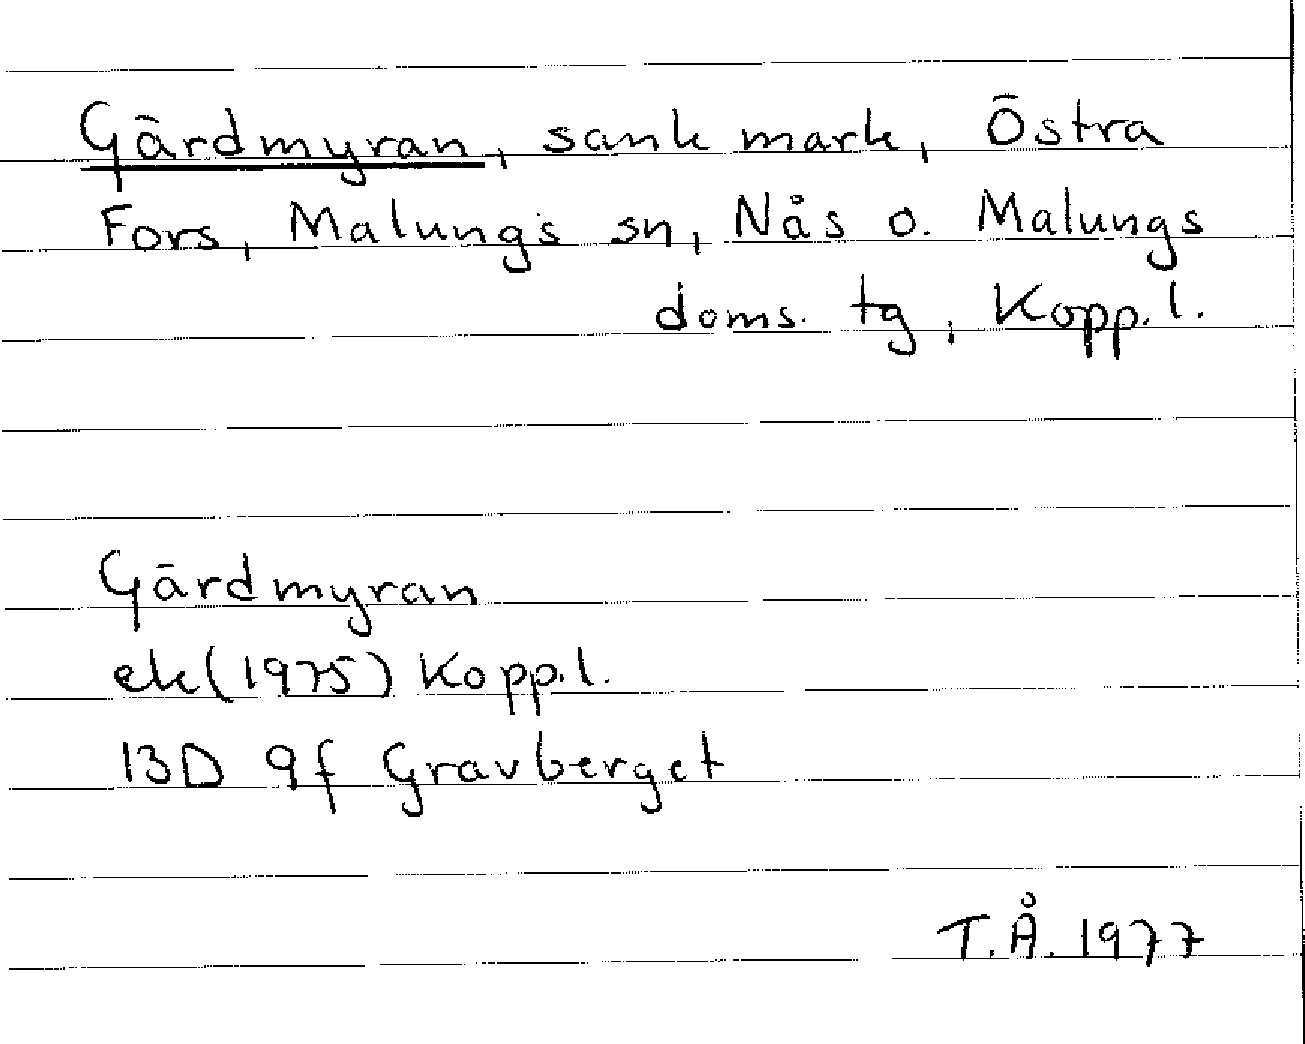 Gärdmyran, sank mark, Östra
Fors, Malungs sn, Nås o. Malungs
doms. tg, Kopp. l.
Gärdmyran
ek (1975) Kopp. l.
13D 9f Gravberget
T.Å. 1977